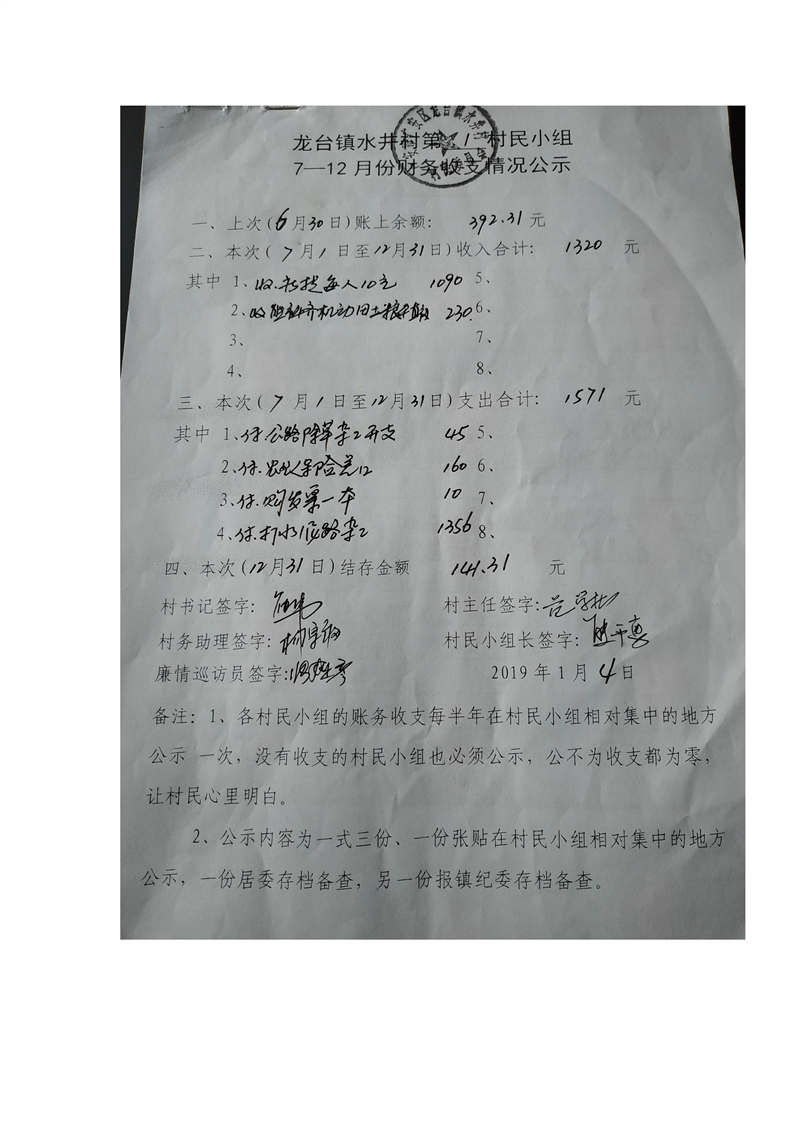 龙台镇水井村第1村民小组
7—12月份财务收支情况公示
一、上次(6月30日)账上余额: 392.31元
二、本次(7月1日至12月31日)收入合计: 1320 元
其中 1、收 每人10元 1090 5、
2、收 机动田土 230. 6、
3、 7、
4、 8、
三、本次(7月1日至12月31日)支出合计: 1571 元
其中 1、付.公路除草杂工开支 45 5、
2、付.农业保险 160 6、
3、付.购发票一本 10 7、
4、付. 路杂工 1356 8、
四、本次(12月31日)结存金额 141.31 元
村书记签字: 村主任签字:
村务助理签字: 村民小组长签字:
廉情巡访员签字: 2019年1月4日
备注:1、各村民小组的账务收支每半年在村民小组相对集中的地方
公示 一次，没有收支的村民小组也必须公示，公不为收支都为零，
让村民心里明白。
2、公示内容为一式三份、一份张贴在村民小组相对集中的地方
公示，一份居委存档备查，另一份报镇纪委存档备查。